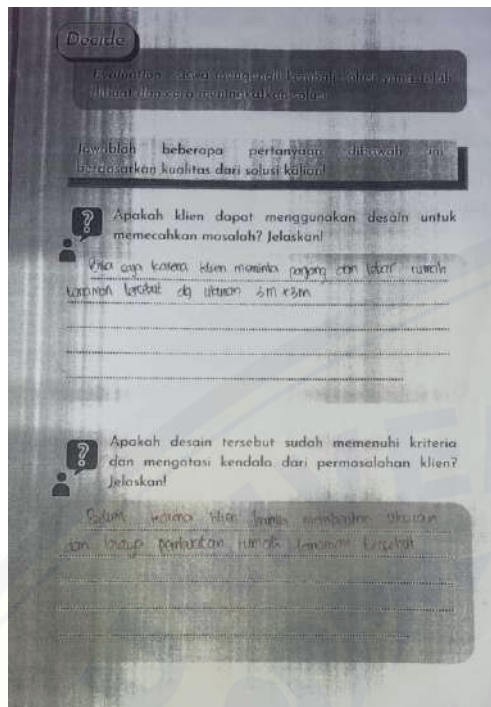 Decide
Evaluation siswa menguji kembali solusi yang telah
dibuat dan cara meningkatkan solusi
Jawablah beberapa pertanyaan dibawah ini
berdasarkan kualitas dari solusi kalian!
Apakah klien dapat menggunakan desain untuk
memecahkan masalah? Jelaskan!
Bisa saja karena klien meminta panjang dan lebar rumah
tanaman tersebut dg ukuran 3m x 3m
Apakah desain tersebut sudah memenuhi kriteria
dan mengatasi kendala dari permasalahan klien?
Jelaskan!
Belum karena klien hanya membatasi ukuran
dan tersebut